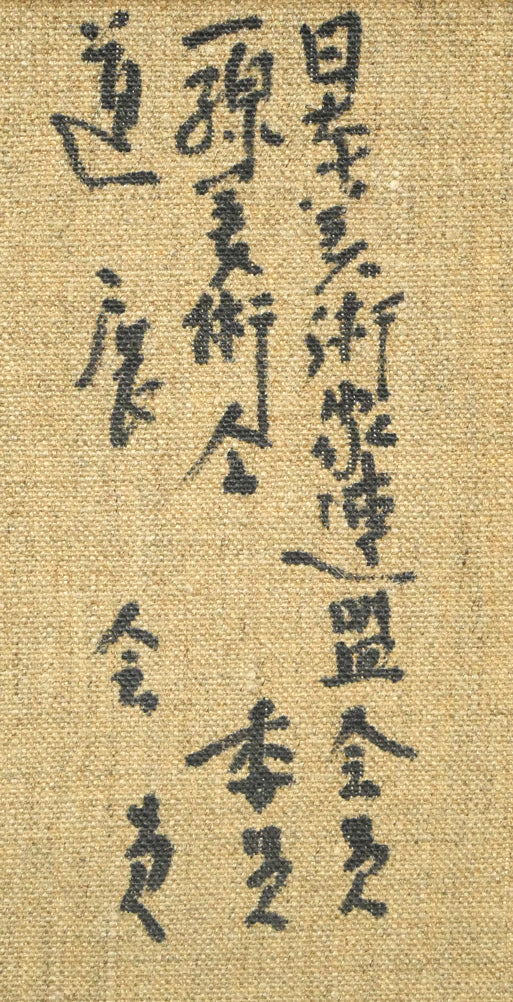 日本美術家連盟会員
一線美術会 委員
道展 会員